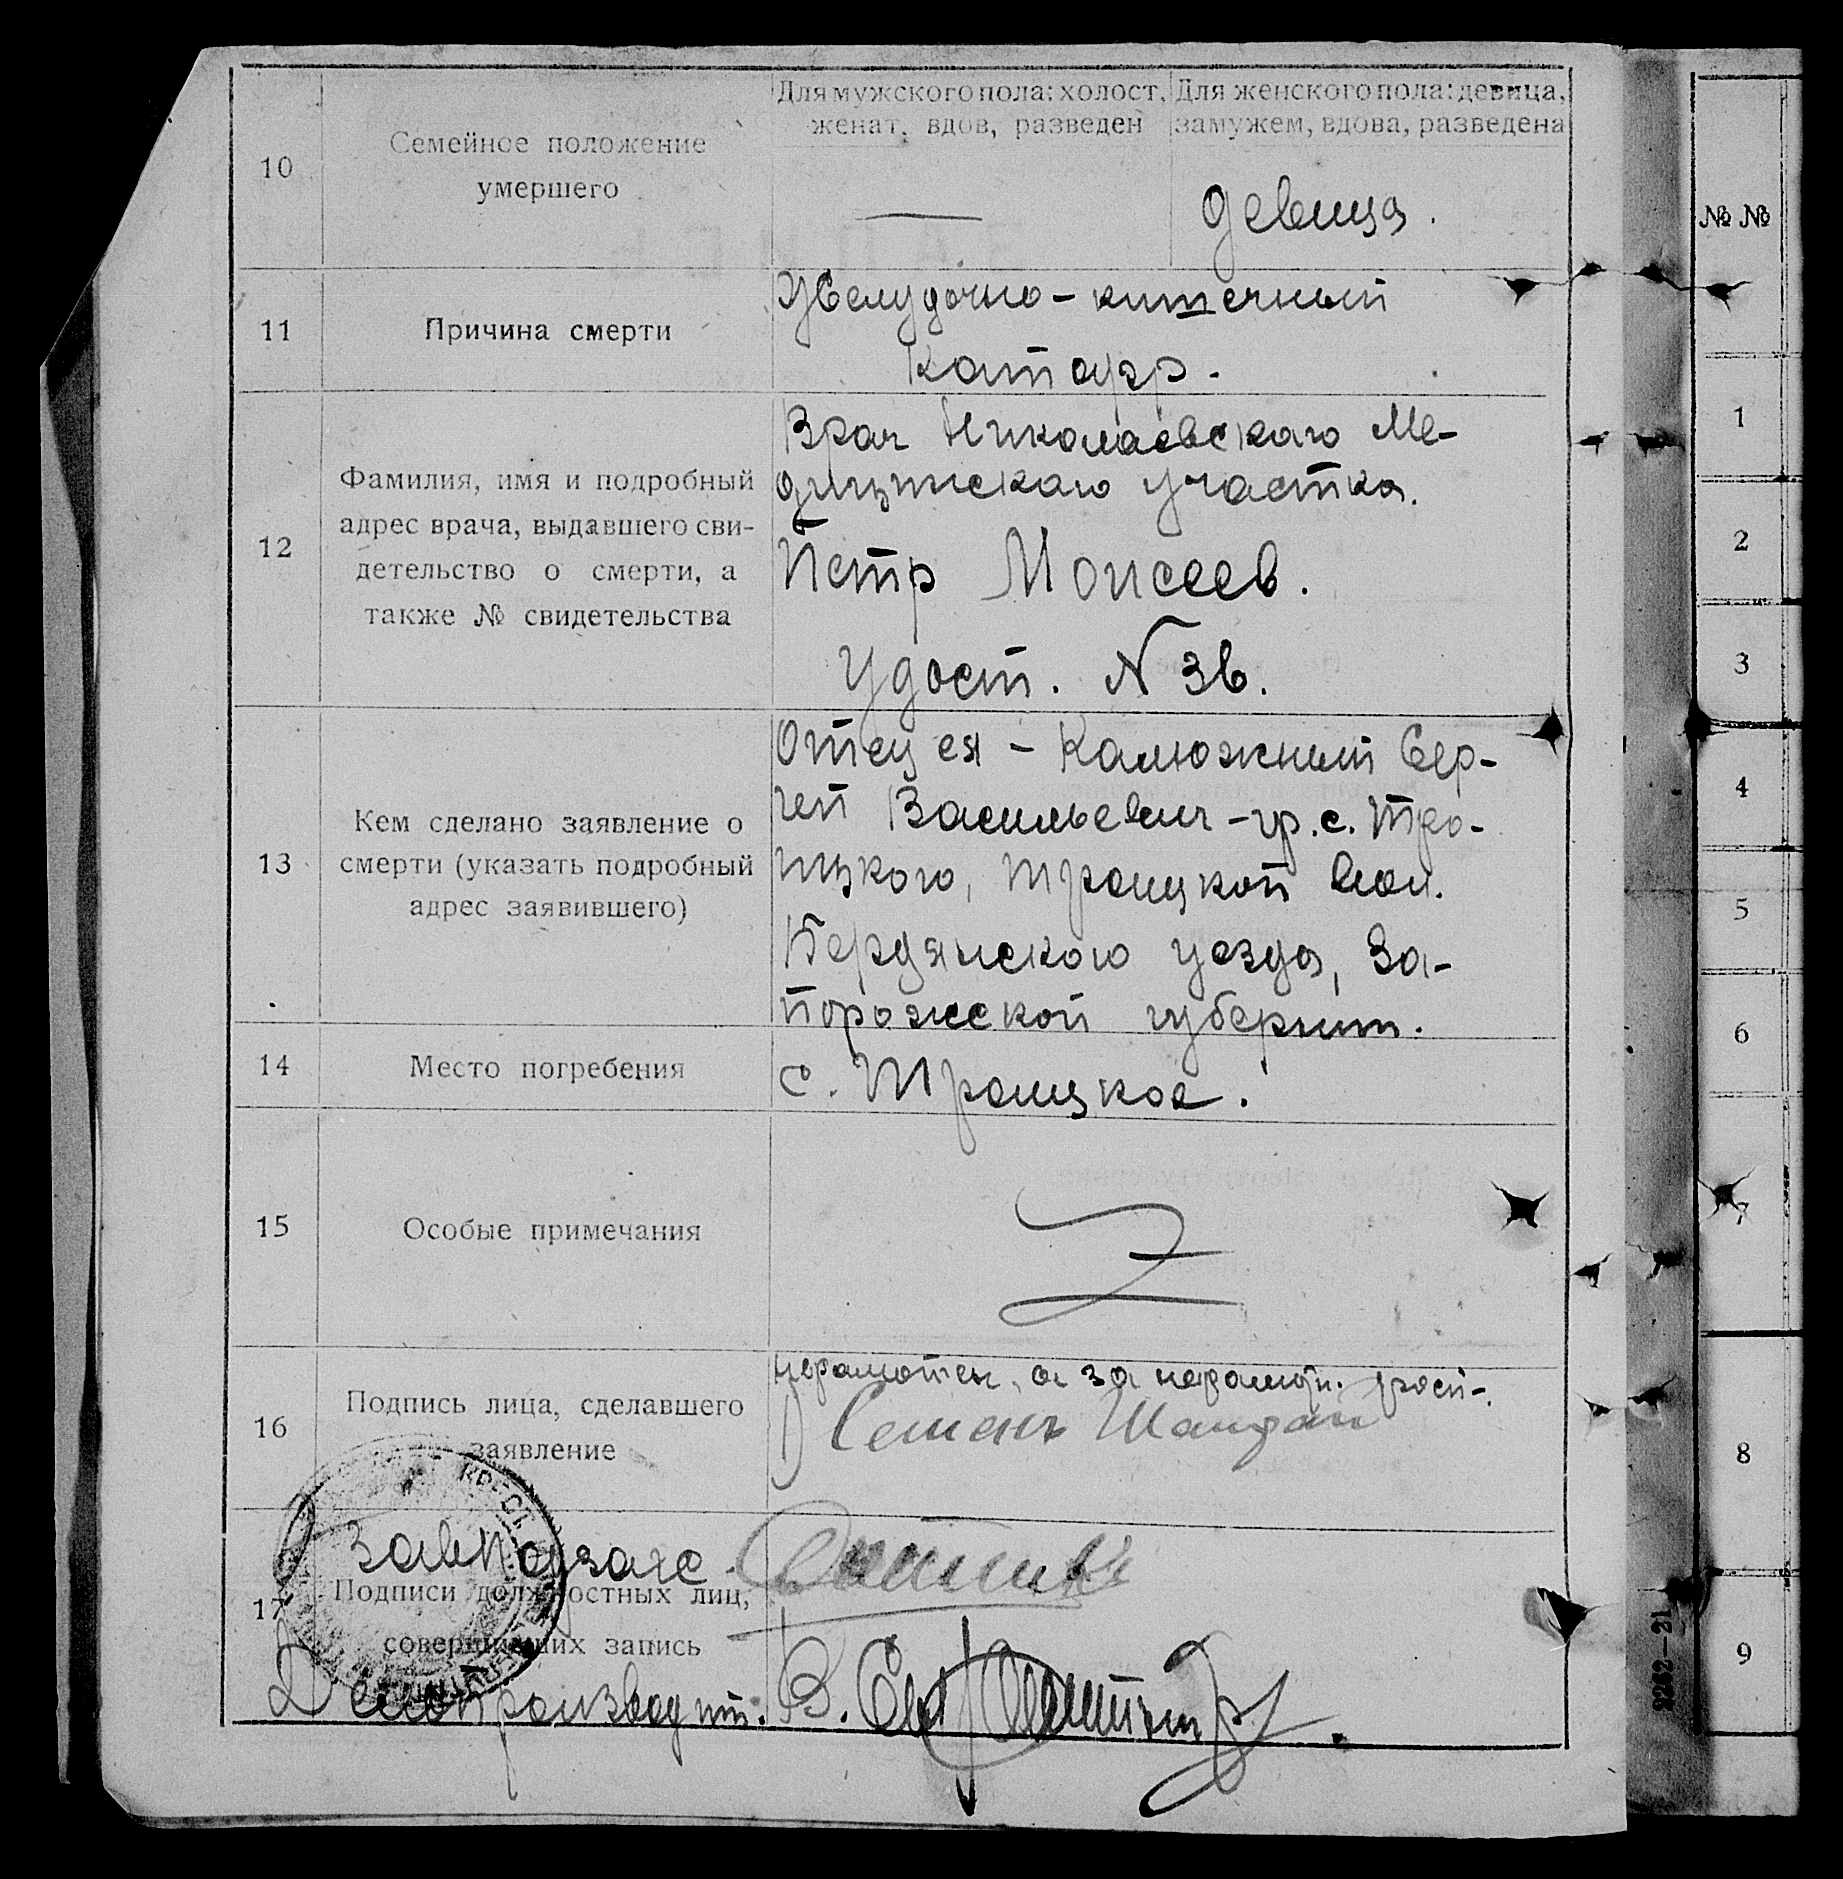 10
Семейное положение
умершего
Для мужского пола: холост,
женат, вдов, разведен
Для женского пола: девица,
замужем, вдова, разведена
девица.
11
Причина смерти
Желудочно-кишечный
катарр.
12
Фамилия, имя и подробный
адрес врача, выдавшего сви-
детельство о смерти, а
также № свидетельства
Врач Николаевского Ме-
дицинскаго участка.
Петр Моисеев.
Удост. N 36.
13
Кем сделано заявление о
смерти (указать подробный
адрес заявившего)
Отец ея - Калюжный Сер-
гей Васильевич - гр. с. Тро-
ицкого, Троицкой вол.
Бердянского уезда, За-
порожской губернии.
14
Место погребения
с. Троицкое.
15
Особые примечания
16
Подпись лица, сделавшего
заявление
неграмотен, а за неграмотн. росп-.
1) Семенъ
17
Завподзагс
Подписи должностных лиц,
совершивших запись
Делопроизводит. В.
№ №
1
2
3
4
5
6
7
8
9
2262—21